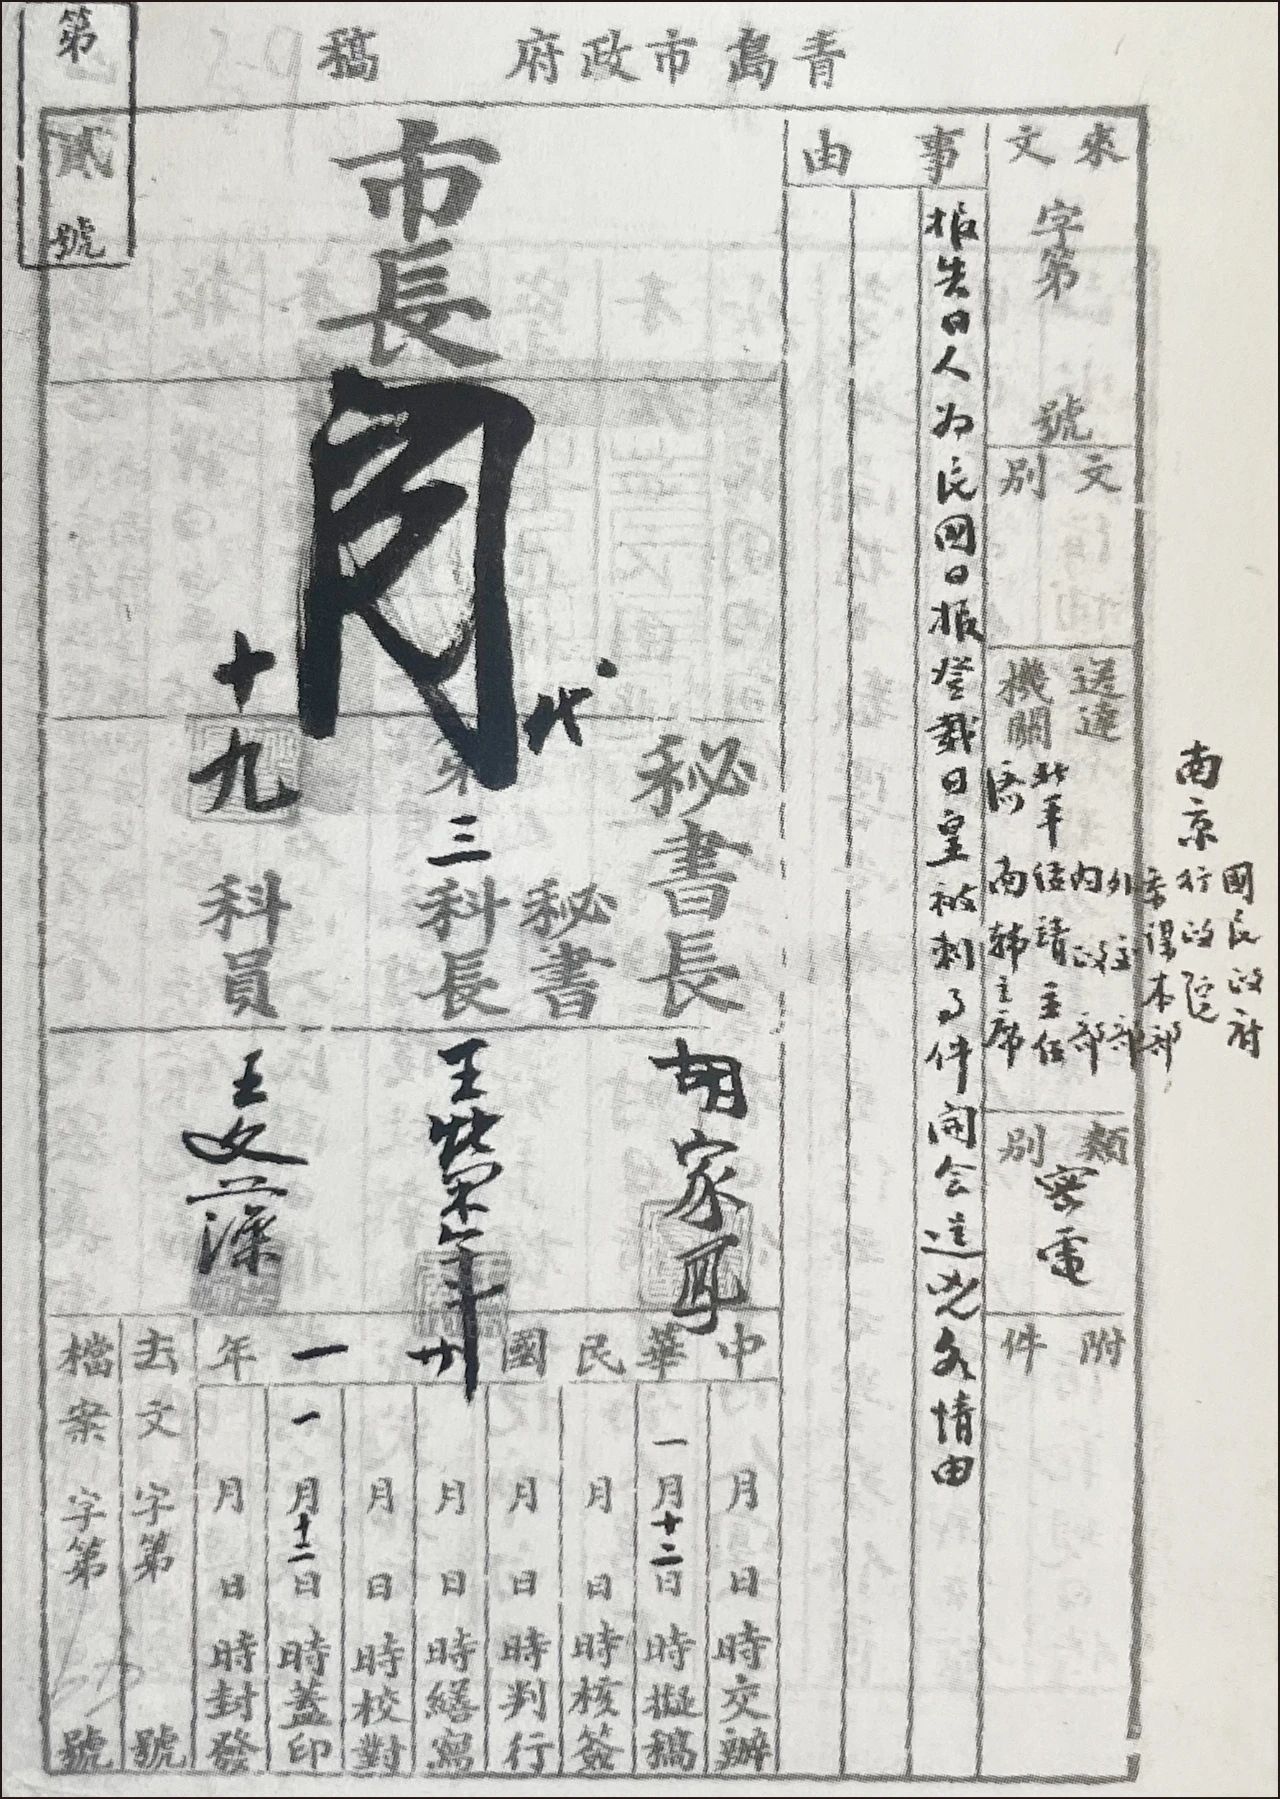 青島市政府 稿
第貳號
來文 字第 號
文別
送達機關
南京
國民政府
行政院
參謀本部
外交部
內政部
北平綏靖主任
濟南韓主席
類別 密電
附件
事由
報告日人为民國日報登載日皇被刺事件開会逞兇各情由
市長
代
十九
秘書長 胡家鳳
秘書
第三科長 王崇年
科員 王文藻
中華民國廿一年
月 日 時交辦
一月十二日 時擬稿
月 日 時核簽
月 日 時判行
月 日 時繕寫
月 日 時校對
一月十二日 時蓋印
月 日 時封發
去文 字第 號
檔案 字第 號